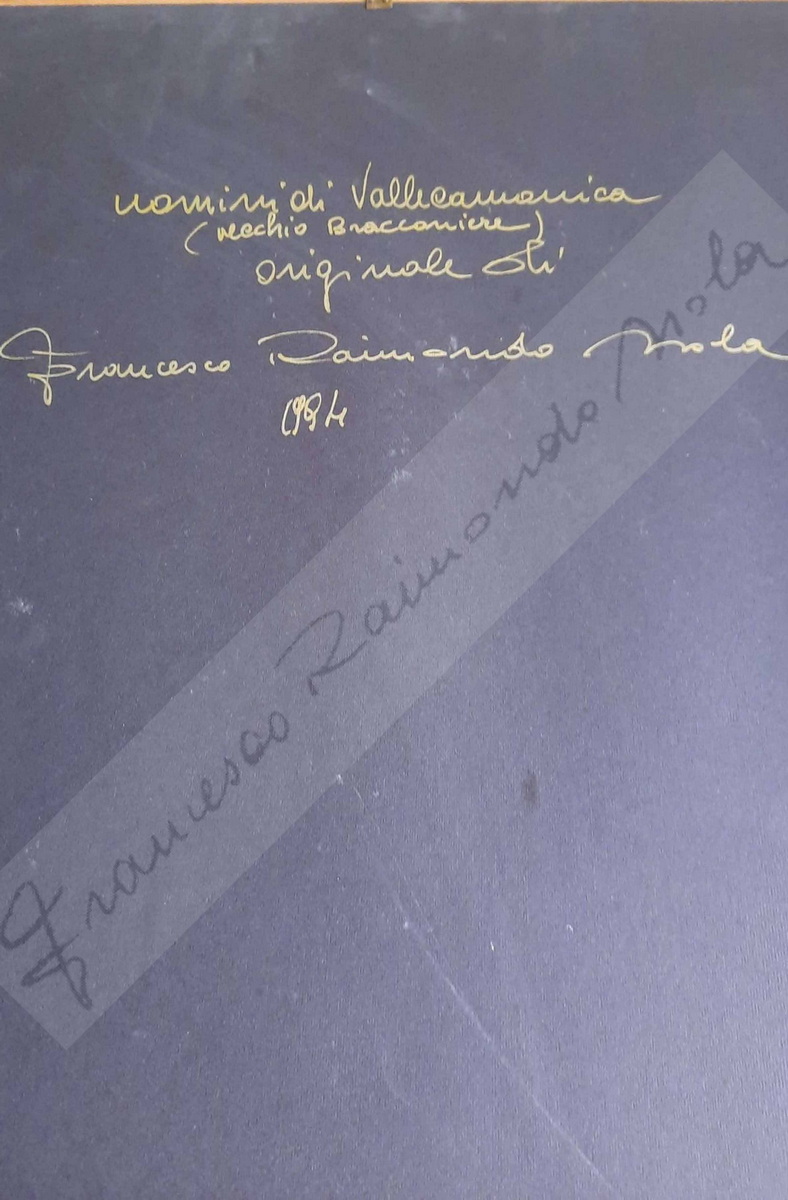 uomini di Vallecamonica
(vecchio Bracconiere)
originale di
Francesco Raimondo Mola
1994
Francesco Raimondo Mola